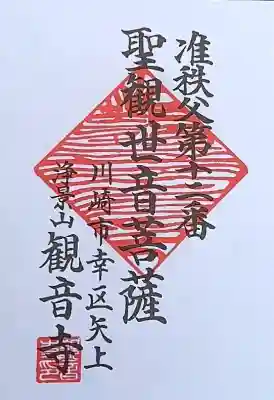 准秩父第十二番
聖観世音菩薩
川崎市幸区矢上
浄景山観音寺